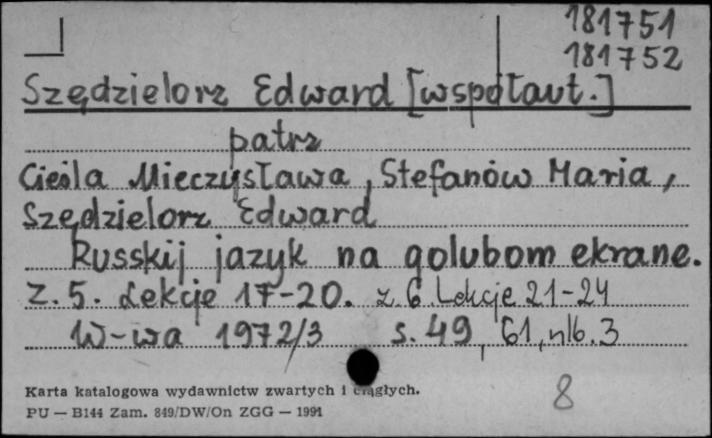 181751
181752
Szędzielorz Edward [współaut.]
patrz
Cieśla Mieczysława, Stefanów Maria,
Szędzielorz Edward
Russkij jazyk na golubom ekrane.
Z. 5. Lekcje 17-20. z. 6 Lekcje 21-24
W-wa 1972/3 s. 49, 61, nlb. 3
Karta katalogowa wydawnictw zwartych i ciągłych.
PU — B144 Zam. 849/DW/On ZGG — 1991
8